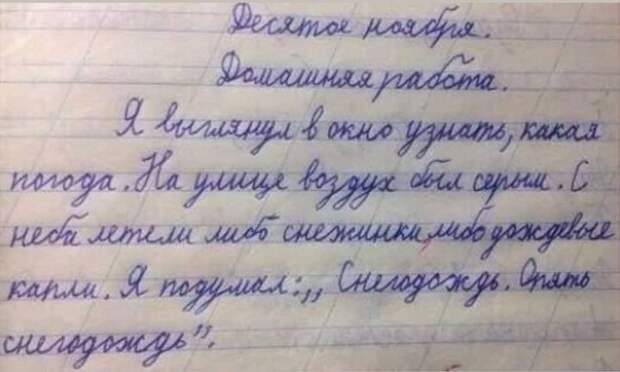 Десятое ноября.
Домашняя работа.
Я выглянул в окно узнать, какая
погода. На улице воздух был серым. С
неба летели либо снежинки, либо дождевые
капли. Я подумал: „ Снегодождь. Опять
снегодождь".